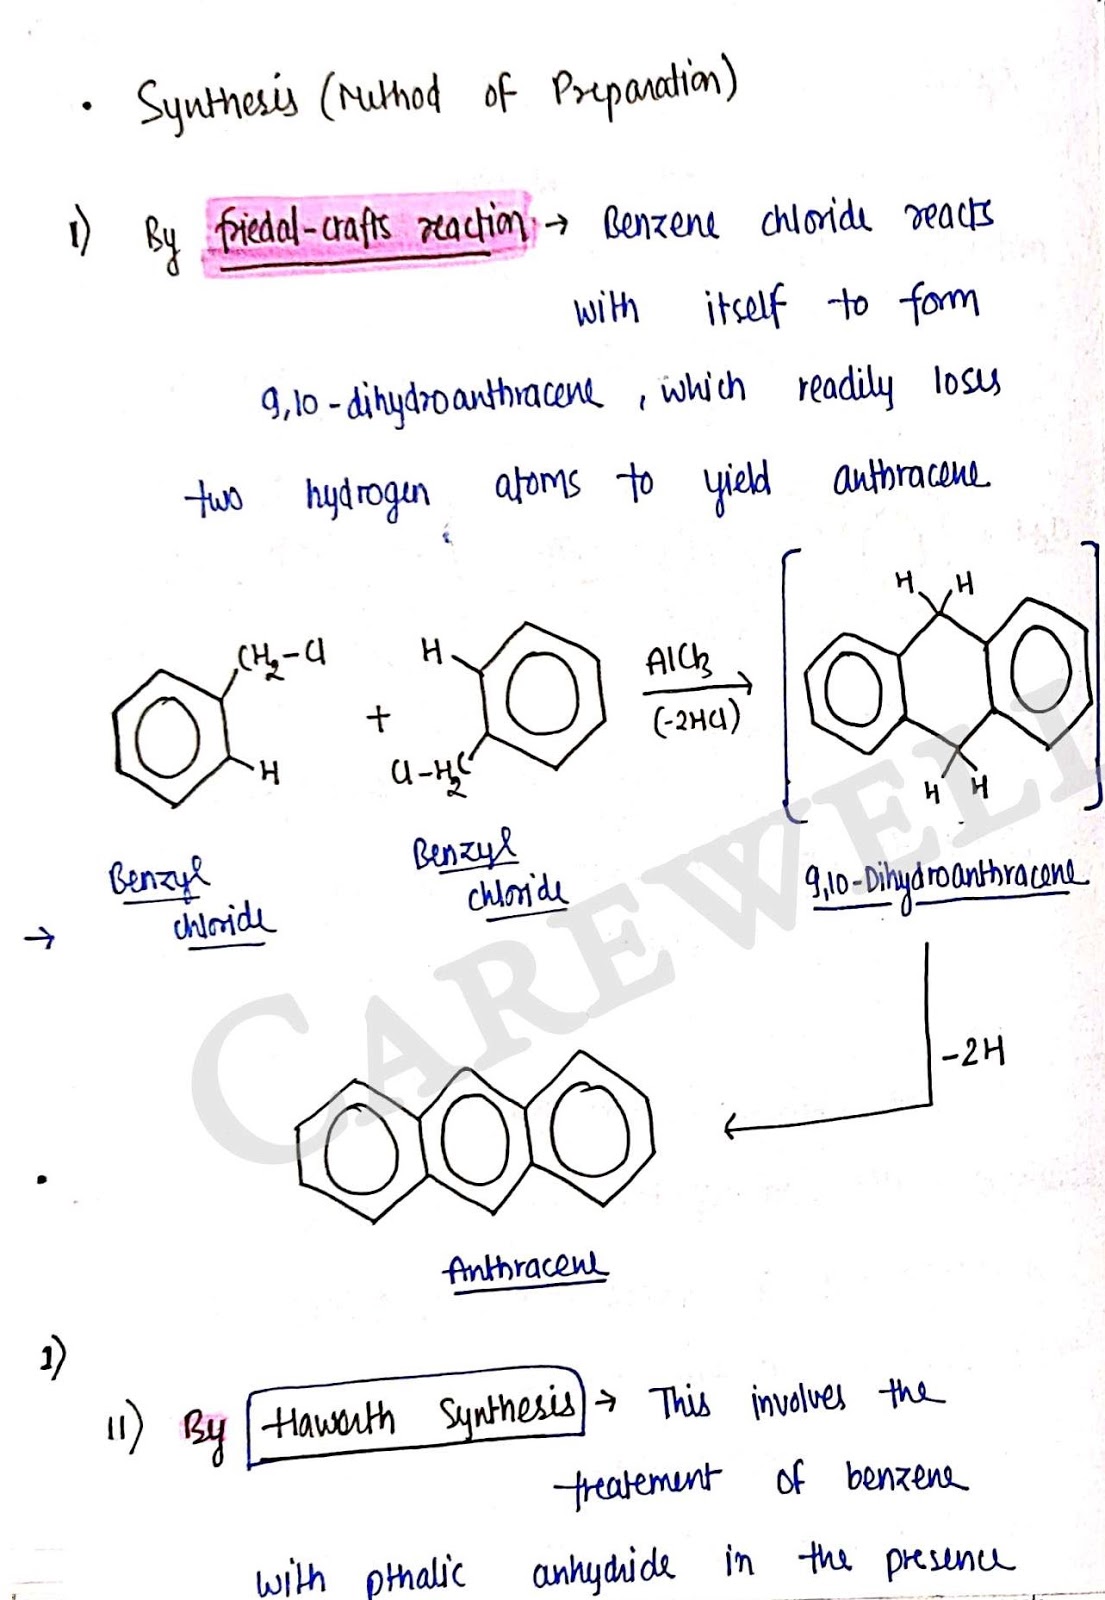 • Synthesis (Method of Preparation)
1) By friedal-crafts reaction → Benzene chloride reacts
with itself to form
9,10-dihydroanthracene, which readily loses
two hydrogen atoms to yield anthracene
CH₂-Cl
H
+
H
Cl-H₂C
AlCl₃
(-2HCl)
H H
H H
Benzyl
chloride
Benzyl
chloride
9,10-Dihydroanthracene
→
-2H
Anthracene
CAREWELL
1)
11) By Haworth Synthesis → This involves the
treatement of benzene
with pthalic anhydride in the presence